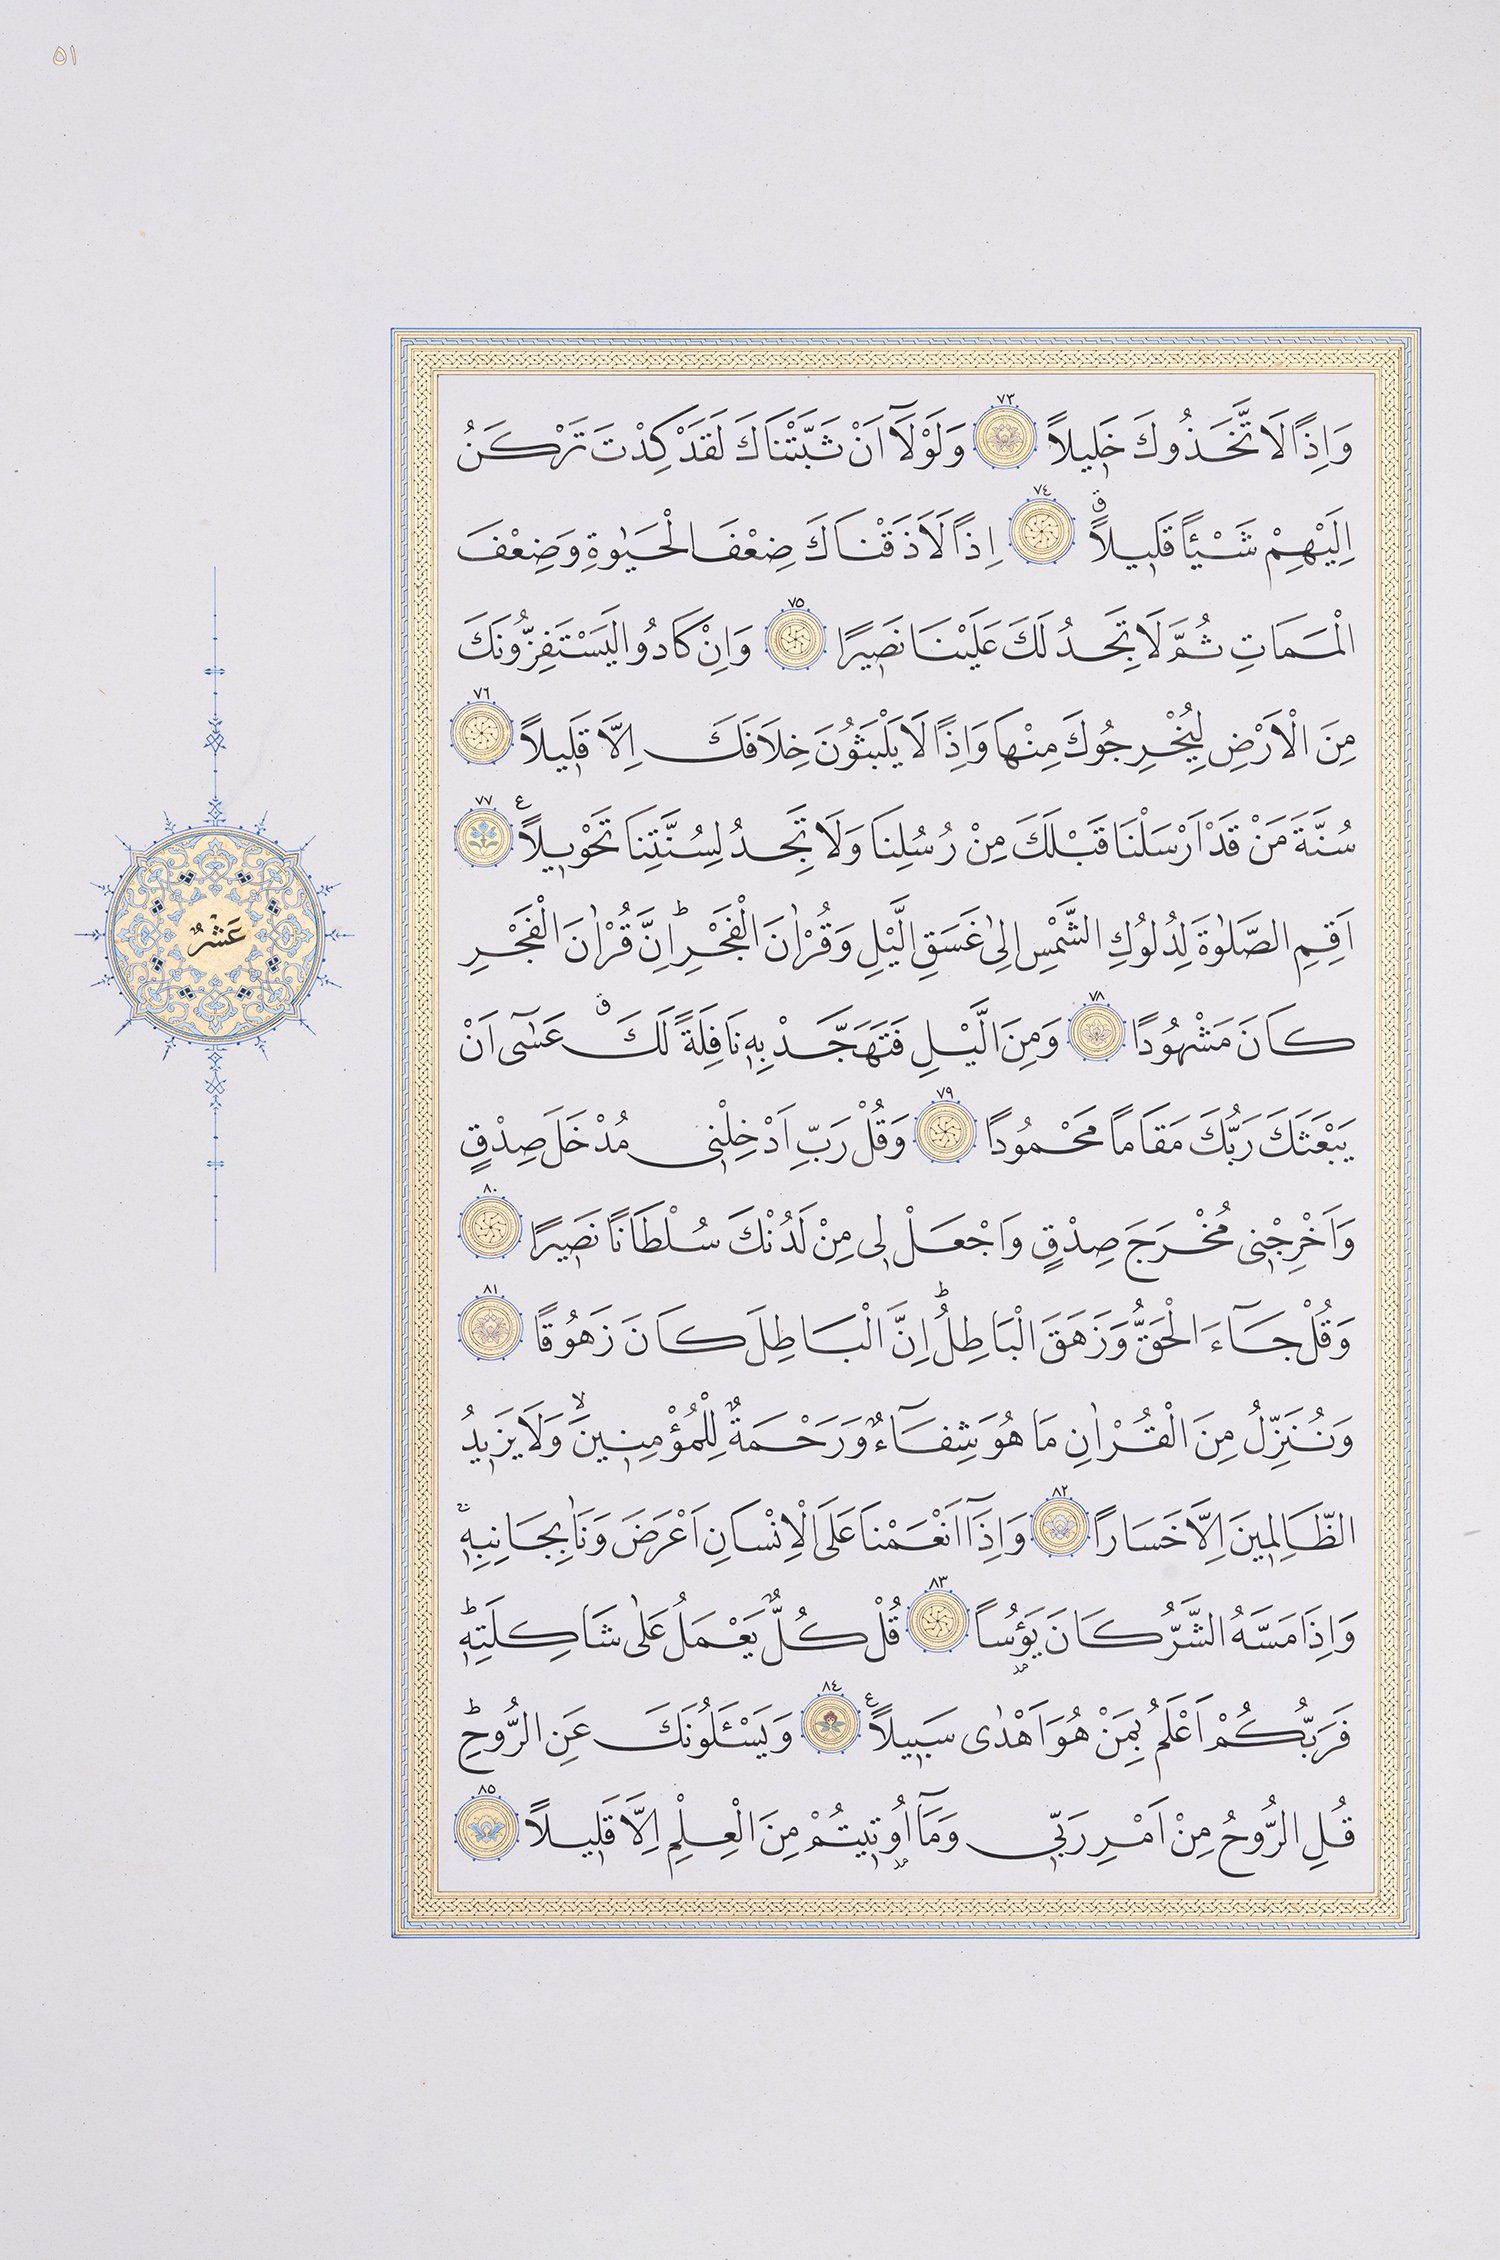 ٥١
وَاِذًا لَاتَّخَذُوكَ خَلٖيلًا ٧٣ وَلَوْلَٓا اَنْ ثَبَّتْنَاكَ لَقَدْ كِدْتَ تَرْكَنُ
اِلَيْهِمْ شَيْـًٔا قَلٖيلًاۗ ٧٤ اِذًا لَاَذَقْنَاكَ ضِعْفَ الْحَيٰوةِ وَضِعْفَ
الْمَمَاتِ ثُمَّ لَا تَجِدُ لَكَ عَلَيْنَا نَصٖيرًا ٧٥ وَاِنْ كَادُوا لَيَسْتَفِزُّونَكَ
مِنَ الْاَرْضِ لِيُخْرِجُوكَ مِنْهَا وَاِذًا لَا يَلْبَثُونَ خِلَافَكَ اِلَّا قَلٖيلًا ٧٦
سُنَّةَ مَنْ قَدْ اَرْسَلْنَا قَبْلَكَ مِنْ رُسُلِنَا وَلَا تَجِدُ لِسُنَّتِنَا تَحْوٖيلًاࣖ ٧٧
اَقِمِ الصَّلٰوةَ لِدُلُوكِ الشَّمْسِ اِلٰى غَسَقِ الَّيْلِ وَقُرْاٰنَ الْفَجْرِؕ اِنَّ قُرْاٰنَ الْفَجْرِ
كَانَ مَشْهُودًا ٧٨ وَمِنَ الَّيْلِ فَتَهَجَّدْ بِهٖ نَافِلَةً لَكَۗ عَسٰٓى اَنْ
يَبْعَثَكَ رَبُّكَ مَقَامًا مَحْمُودًا ٧٩ وَقُلْ رَبِّ اَدْخِلْنٖى مُدْخَلَ صِدْقٍ
وَاَخْرِجْنٖى مُخْرَجَ صِدْقٍ وَاجْعَلْ لٖى مِنْ لَدُنْكَ سُلْطَانًا نَصٖيرًا ٨٠
وَقُلْ جَٓاءَ الْحَقُّ وَزَهَقَ الْبَاطِلُؕ اِنَّ الْبَاطِلَ كَانَ زَهُوقًا ٨١
وَنُنَزِّلُ مِنَ الْقُرْاٰنِ مَا هُوَ شِفَٓاءٌ وَرَحْمَةٌ لِلْمُؤْمِنٖينَۙ وَلَا يَزٖيدُ
الظَّالِمٖينَ اِلَّا خَسَارًا ٨٢ وَاِذَٓا اَنْعَمْنَا عَلَى الْاِنْسَانِ اَعْرَضَ وَنَاٰ بِجَانِبِهٖۚ
وَاِذَا مَسَّهُ الشَّرُّ كَانَ يَؤُسًا ٨٣ قُلْ كُلٌّ يَعْمَلُ عَلٰى شَاكِلَتِهٖؕ
فَرَبُّكُمْ اَعْلَمُ بِمَنْ هُوَ اَهْدٰى سَبٖيلًاࣖ ٨٤ وَيَسْـَٔلُونَكَ عَنِ الرُّوحِؕ
قُلِ الرُّوحُ مِنْ اَمْرِ رَبّٖى وَمَٓا اُو۫تٖيتُمْ مِنَ الْعِلْمِ اِلَّا قَلٖيلًا ٨٥
عَشْرٌ